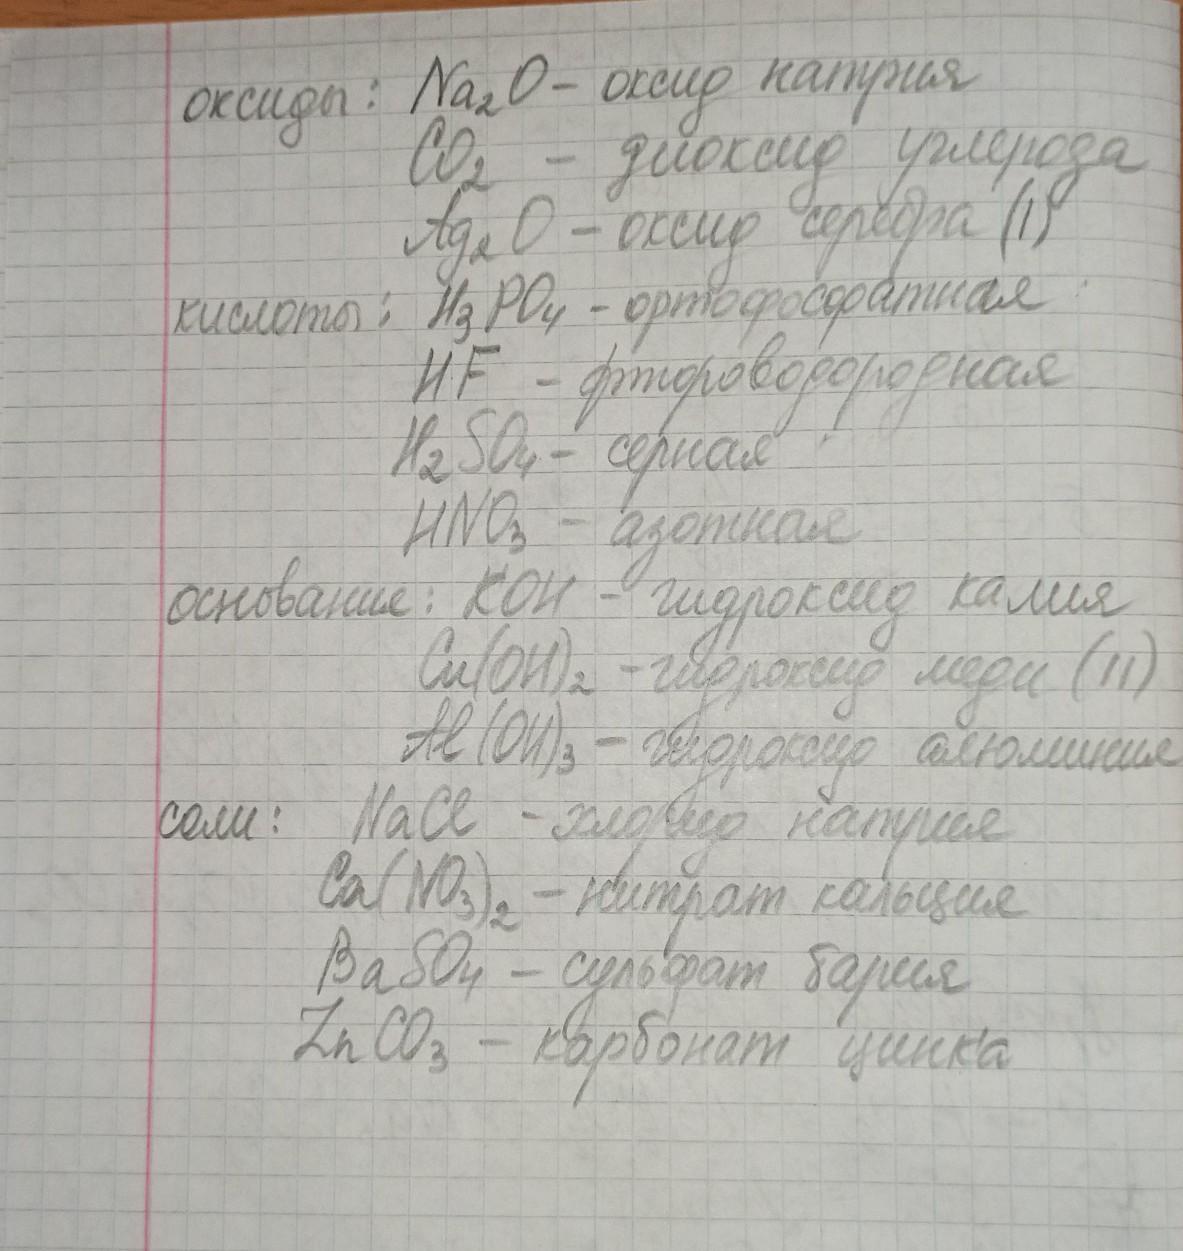 оксиды: Na₂O – оксид натрия
CO₂ – диоксид углерода
Ag₂O – оксид серебра (I)
кислоты: H₃PO₄ – ортофосфатная
HF – фтороводородная
H₂SO₄ – серная
HNO₃ – азотная
основание: KOH – гидроксид калия
Cu(OH)₂ – гидроксид меди (III)
Al(OH)₃ – гидроксид алюминия
соли: NaCl – хлорид натрия
Ca(NO₃)₂ – нитрат кальция
BaSO₄ – сульфат бария
ZnCO₃ – карбонат цинка